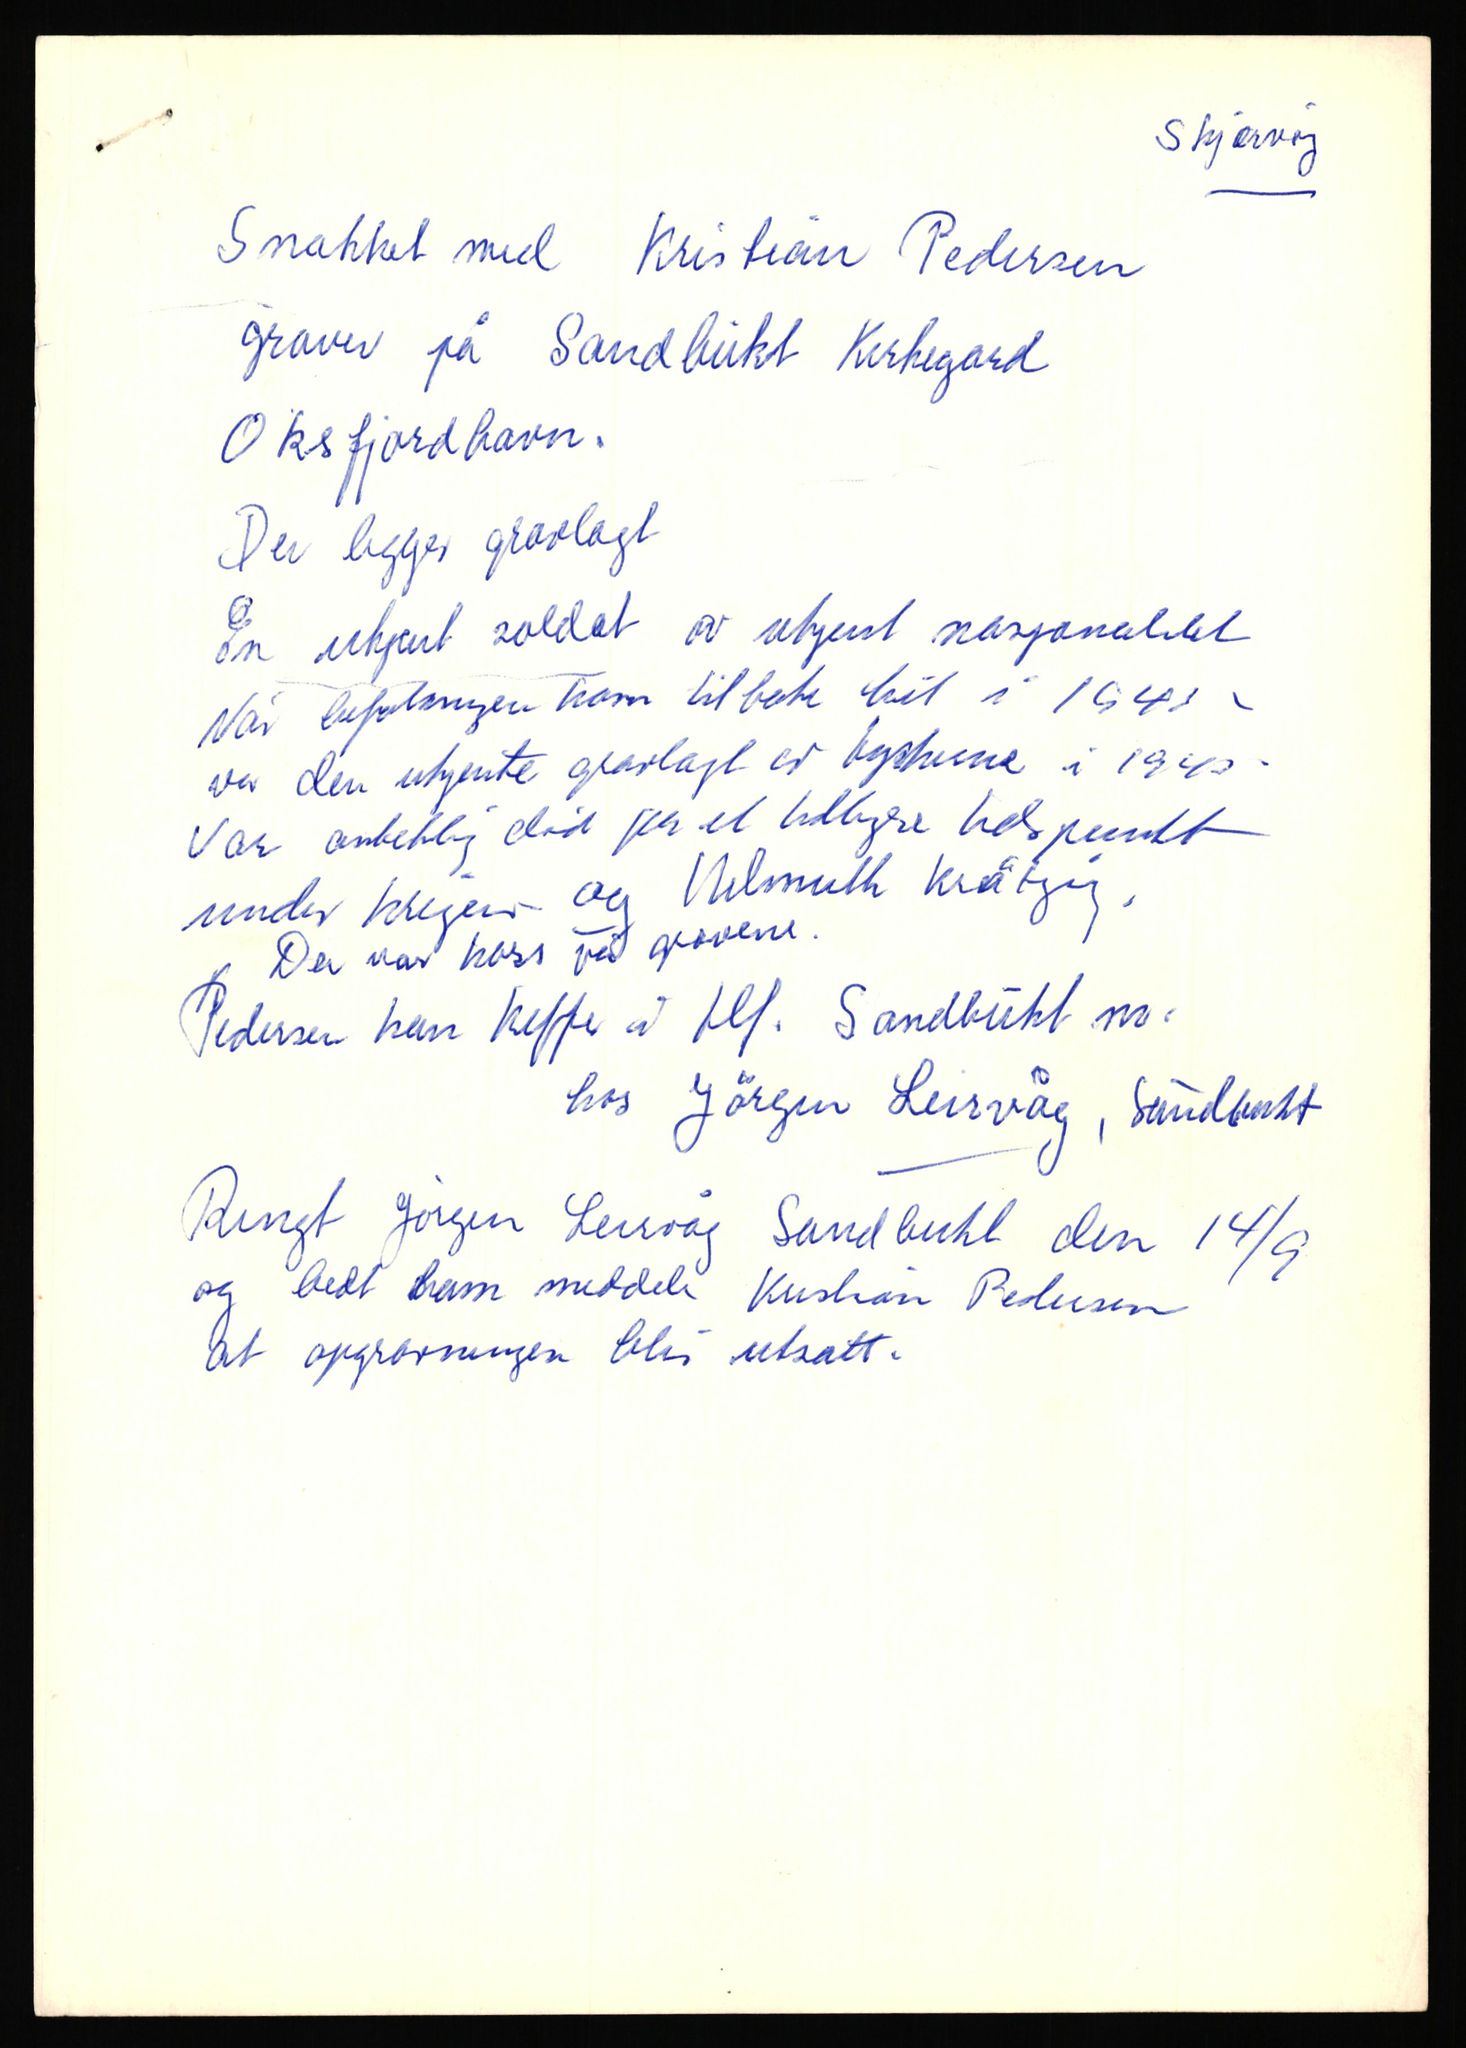 Skjervøy
Snakket med Kristian Pedersen
graver på Sandbukt Kirkegard
Oksfjordhavn.
Der ligger gravlagt
En ukjent soldat av ukjent nasjonalitet
Når befolkningen kom tilbake hit i 1945
var den ukjente gravlagt av tyskerne i 1945
Var antkelig død på et tidligere tidspunkt
under krigen og Helmuth Krätzig.
Der var kors på gravene.
Pedersen kan treffes i tlf. Sandbukt no.
hos Jörgen Leirvåg, Sandbukt
Ringt Jörgen Leirvåg Sandbukt den 14/9
og bedt ham meddele Kristian Pedersen
at opgravningen blir utsatt.